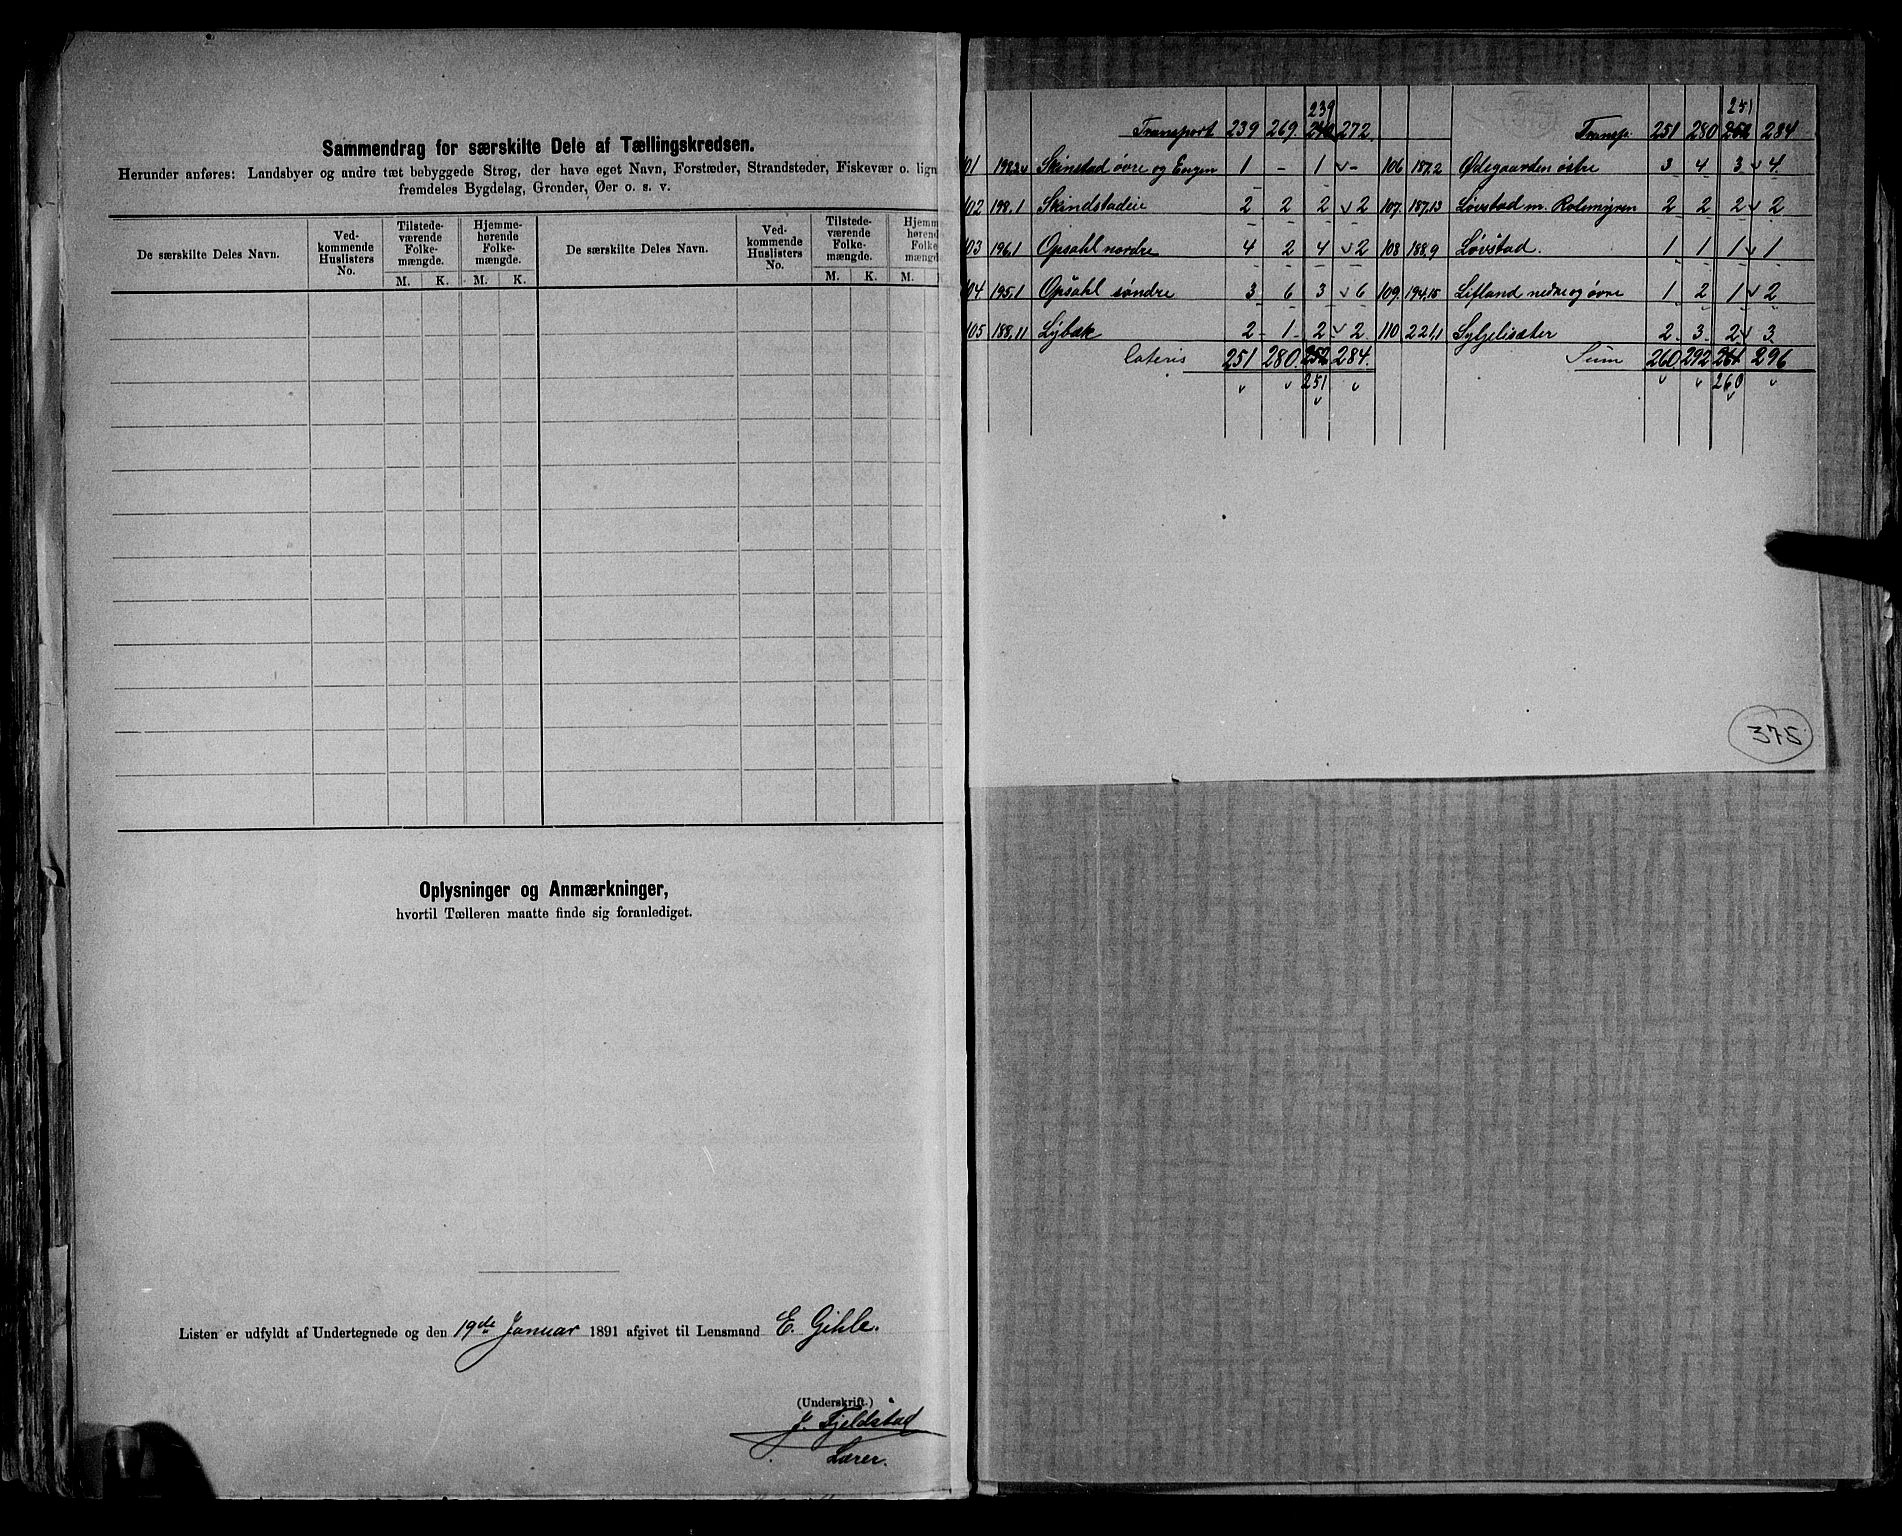 Sammendrag for særskilte Dele af Tællingskredsen.
Herunder anføres: Landsbyer og andre tæt bebyggede Strøg, der have eget Navn, Forstæder, Strandsteder, Fiskevær o. lign
fremdeles Bygdelag, Grender, Øer o. s. v.
De særskilte Deles Navn. Ved-kommende Huslisters No. Tilstede-værende Folke-mængde. Hjemme-hørende Folke-mængde. De særskilte Deles Navn. Ved-kommende Huslisters No. Tilstede-værende Folke-mængde. Hjemm hørend Folke mængd
M. K. M. K. M. K. M.
Oplysninger og Anmærkninger,
hvortil Tælleren maatte finde sig foranlediget.
Listen er udfyldt af Undertegnede og den 19de Januar 1891 afgivet til Lensmand E. Gihle.
(Underskrift.)
J. Fjeldstad
Lærer.
239 251
Transport 239 269. 240 272. Transp. 251 280 252 284
01 198,3,4 Skinstad øvre og Engen 1 - 1 v - 106 187,2 Ødegaarden østre 3 4 3 v 4.
02 198,1 Skindstadeie 2 2 2 v 2 107. 187,13 Løvstad m. Rolsmyren 2 2 2 v 2
03 196,1 Opsahl nordre 4 2 4 v 2 108 188,9 Løvstad. 1 1 1 v 1
04 195,1 Opsahl søndre 3 6 3 v 6 109. 194,15 Lifland nedre og øvre 1 2 1 v 2
05 188,11 Lybæk 2 1 2 v 2 110 221,1 Syljelisæter 2 3 2 v 3
Lateris 251 280. 252 284. Sum 260 292 261 296
251 260
375